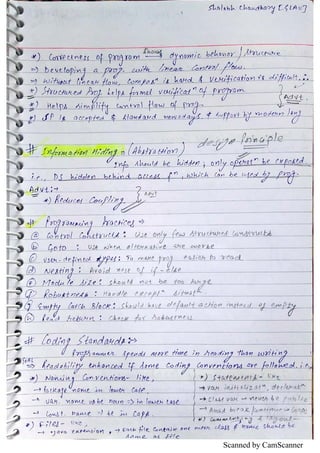 Shalabh Chaudhary [GLAU]
*) Correctness of program ensures dynamic behavior / Structure
→ Developing a prog. with linear control flow.
→ Without linear flow, is hard & Verification is difficult.
*) Structured Prog. helps formal verificatn of program
*) Helps simplify control flow of prog.
Advt.
*) SP is accepted & standard nowadays & support by modern lang
# Information Hiding :- (Abstraction) design principle
Info should be hidden, only be exposed
i.e., DS hidden behind access fn, which can be used by prog.
Advt :-
*) Reduces Coupling
# Programming Practices →
(a) Control Constructs : Use only few structured constructs
(b) Goto : Use when alternative are worse
(c) User-defined types : To make prog easier to read
(d) Nesting : Avoid nest of if-else
(e) Module Size : should not be too large
(f) Robustness : Handle
(g) Empty Catch Block : should have default action instead of empty
(h) Read Return : Check for Robustness
# Coding Standards :→
Programmer spends more time in reading than writing
→ Readability enhanced if some coding conventions are followed. i.e.,
*) Naming Conventions - like,
→ package name in lower case
→ Var. name → be noun → in lower case
→ Const. name → be in Caps.
*) Files - like,
→ java extension, → Each file contain one outer class & name should be
name as file
*) Statements - like
→ Var initializatn, declaratn
→ Class var → never be public
→ Avoid break/continue
*) Commenting &
Scanned by CamScanner